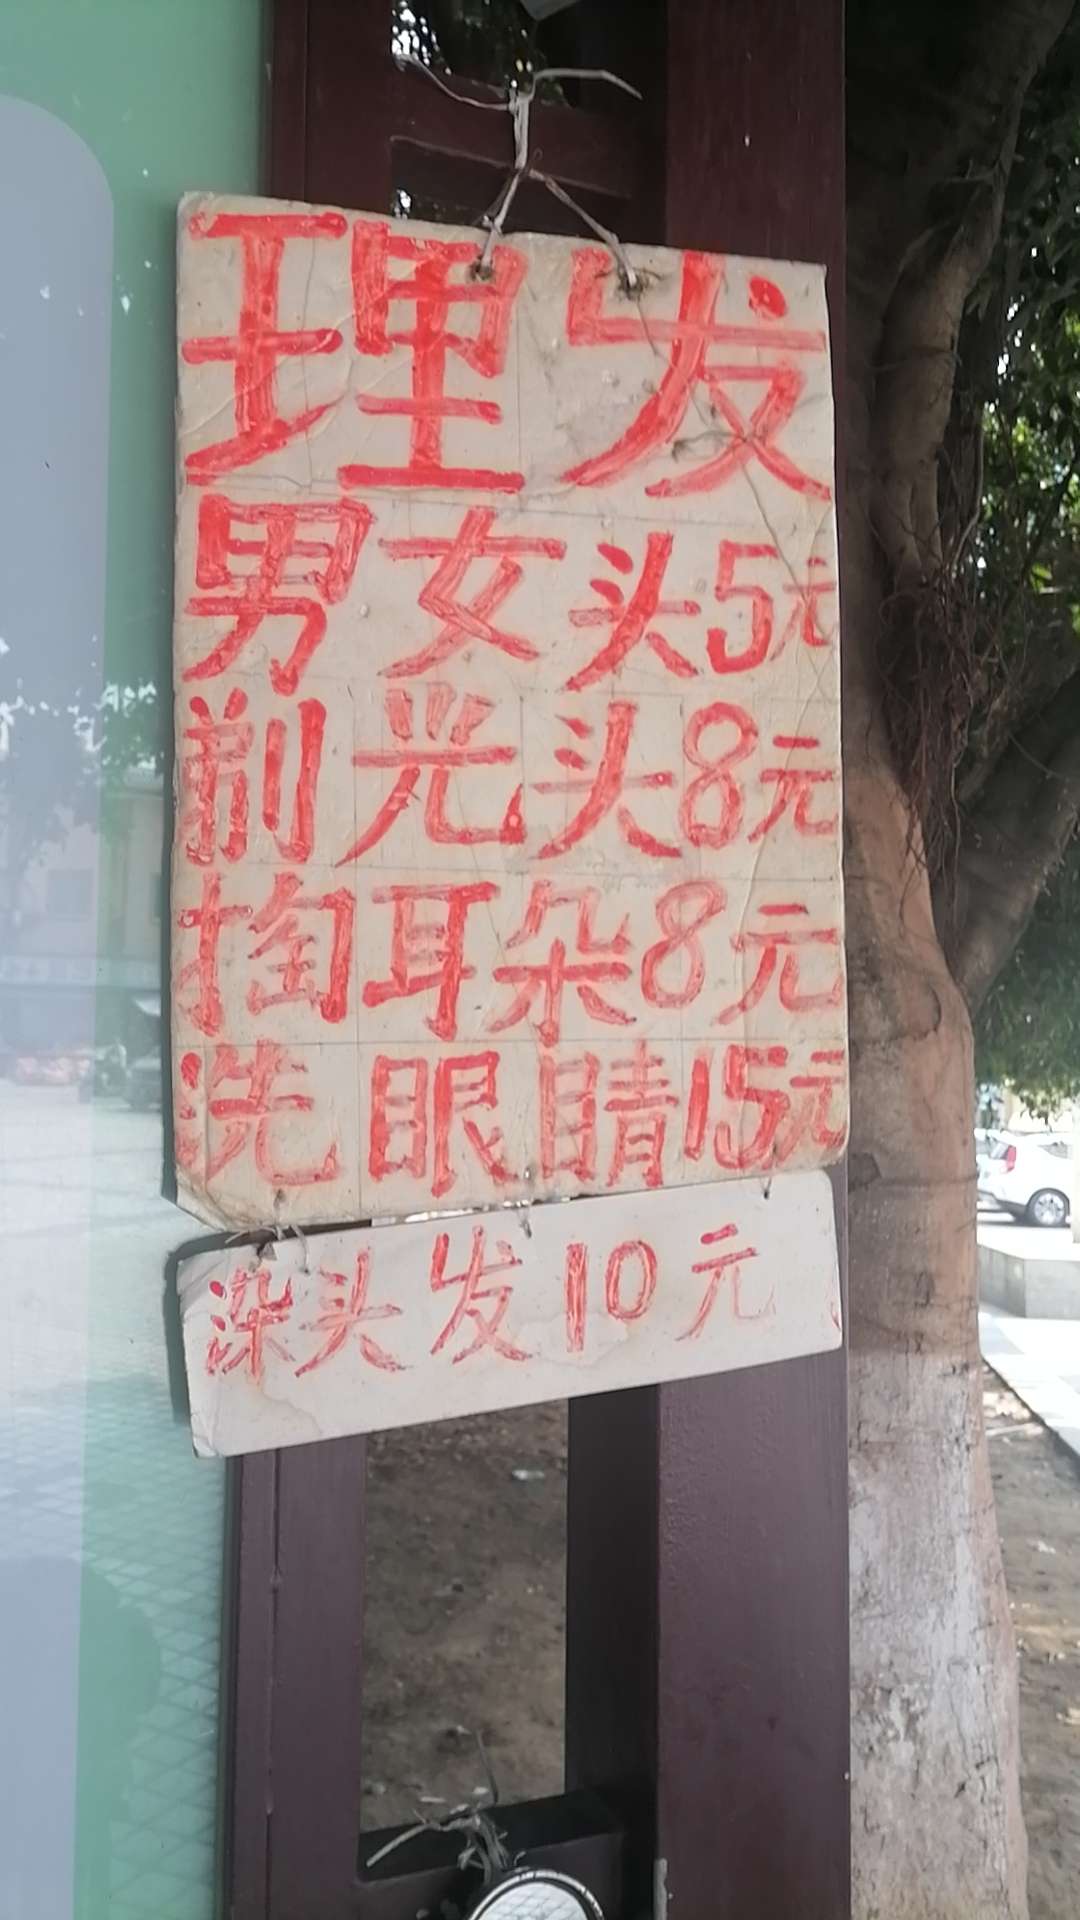 理发
男女头5元
剃光头8元
掏耳朵8元
洗眼睛15元
染头发10元